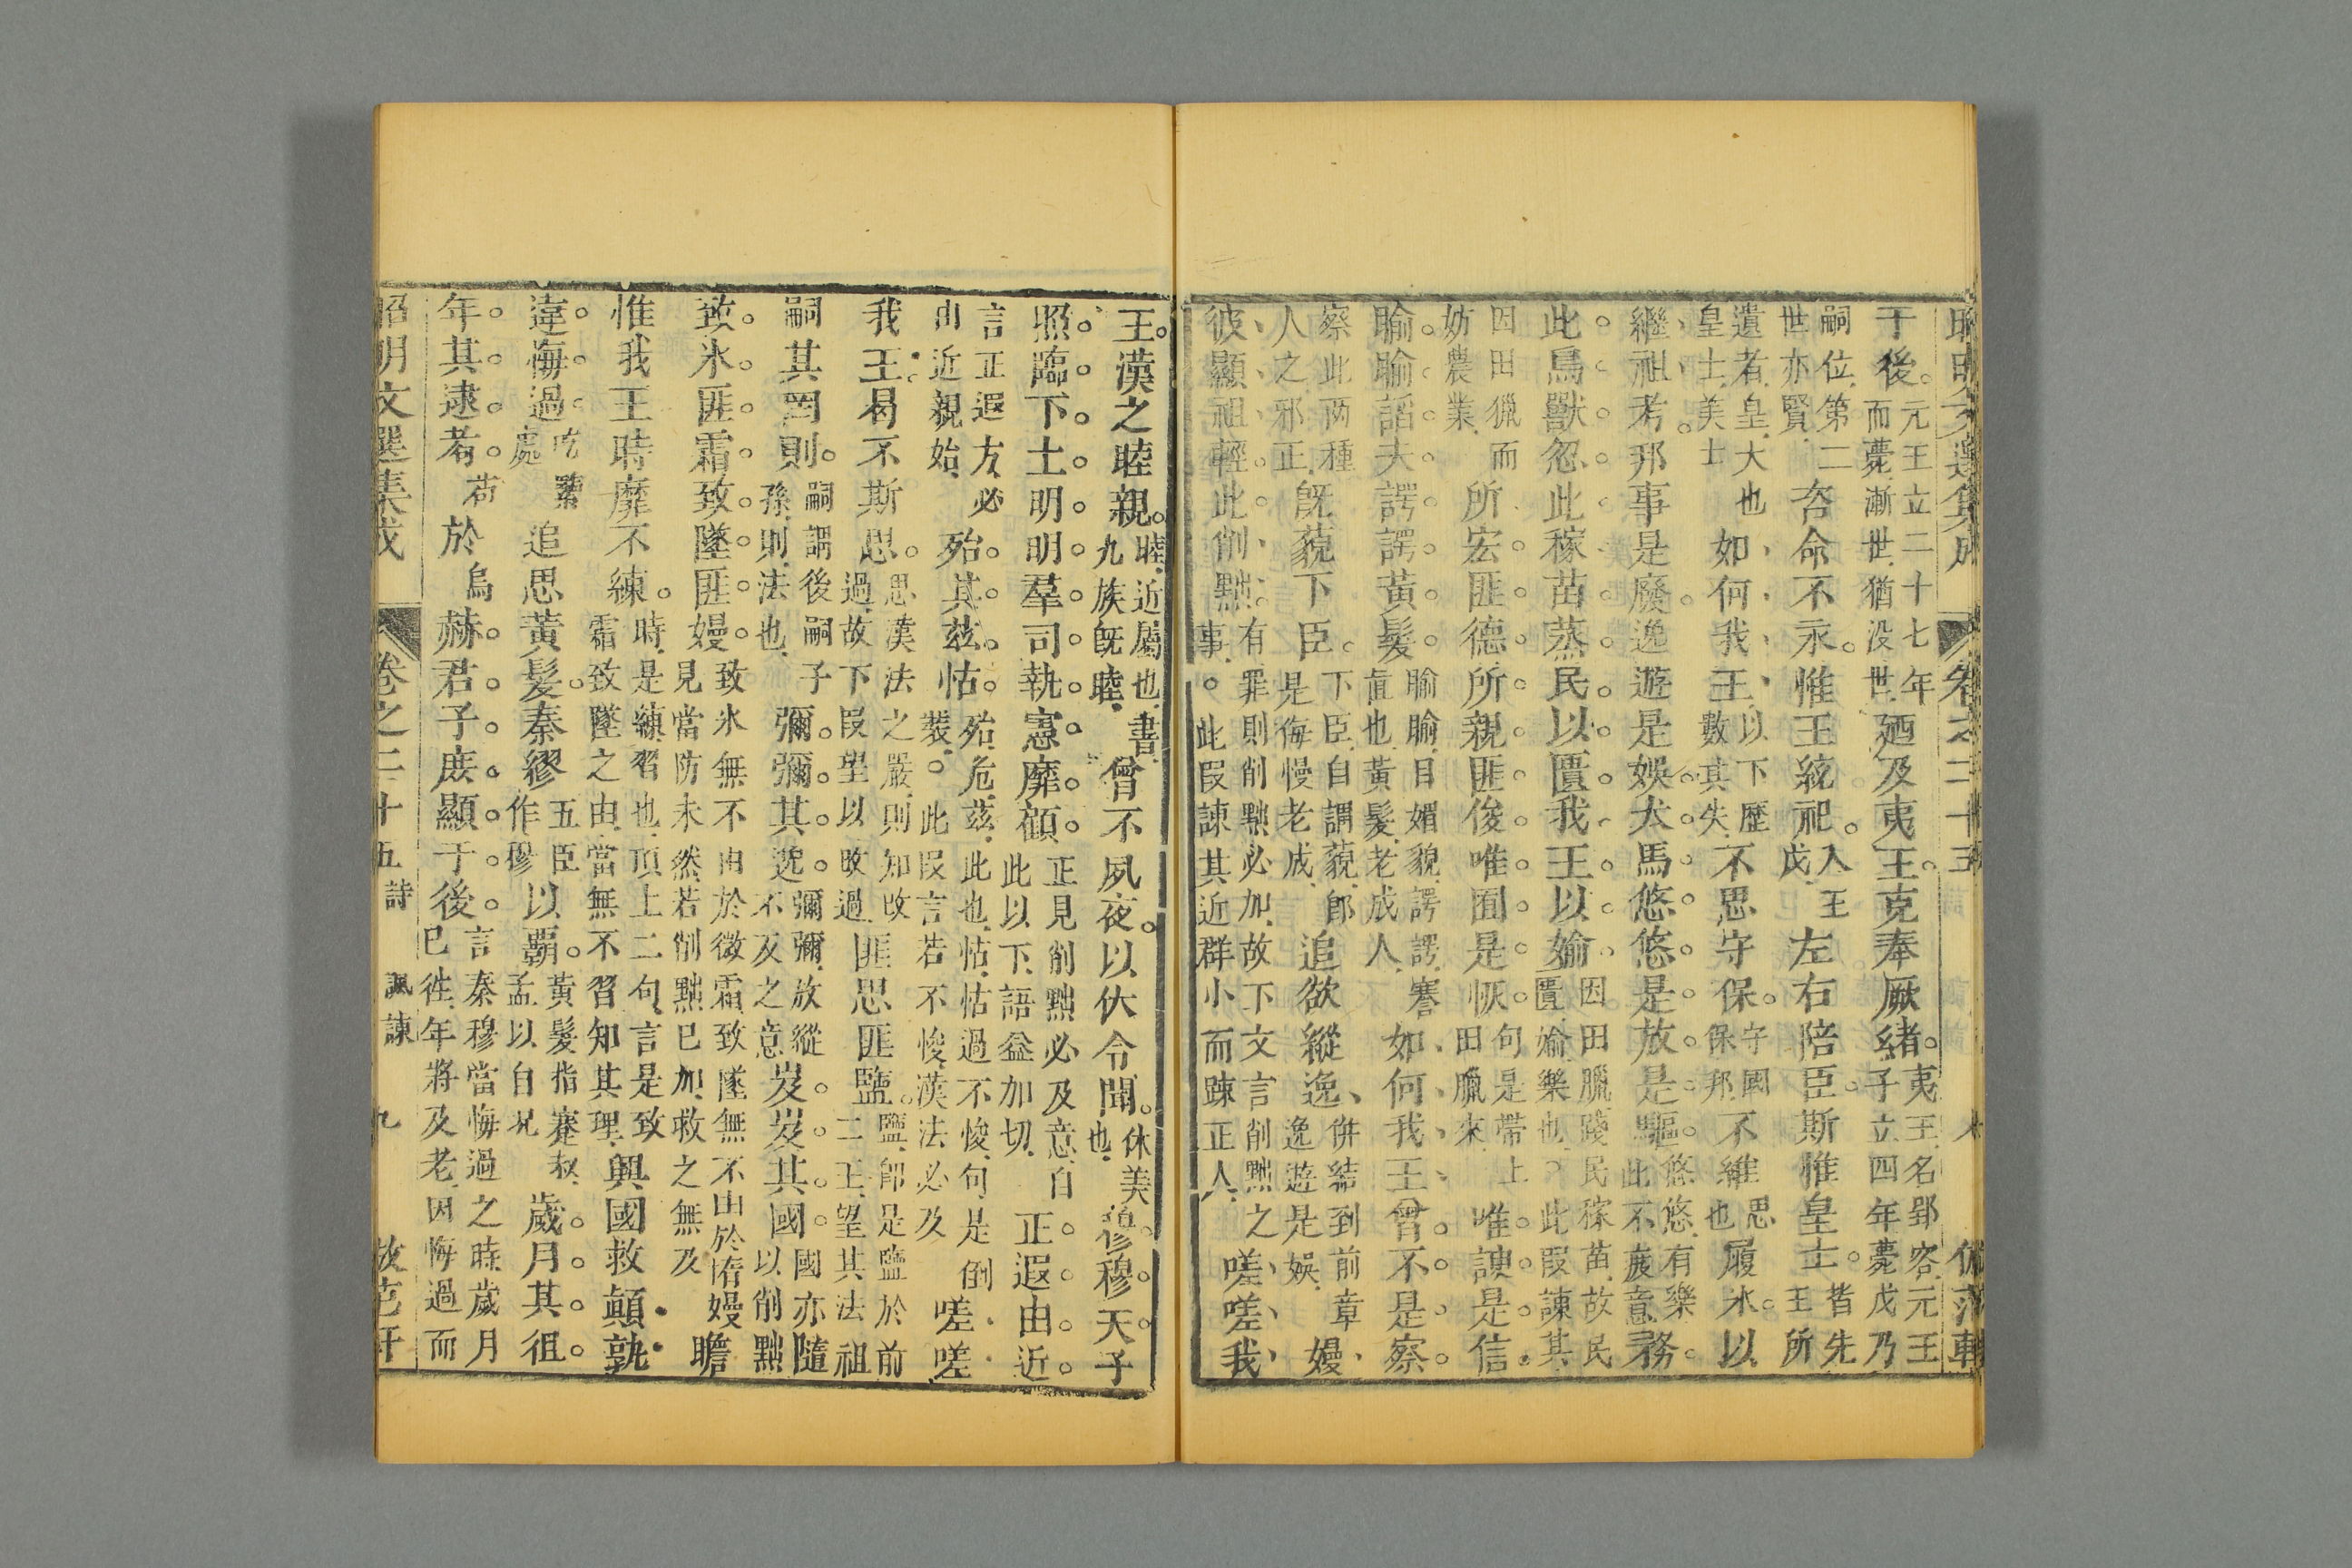 昭明文選集成 卷之二十五 八 倣范軒
于後。元王立二十七年而薨.漸世.猶没世.廼及夷王。克奉厥緒。夷王.名郢客.元王子.立四年薨.戊乃
嗣位.第二世.亦賢.咨命不永。惟王統祀。入王戊.左右陪臣。斯惟皇士。皆先王所
遺者.皇.大也.皇士.美士.如何我王、以下歷數其失.不思守保。守國保邦.不維思也履冰。以
繼祖考。邦事是廢。逸遊是娛。犬馬悠悠。是放是驅。悠悠.有樂此不疲意.務
此鳥獸。忽此稼苗。蒸民以匱。我王以媮。因田臘踐民稼苗.故民匱.媮.樂也。此叚諫其
因田獵而妨農業.所宏匪德。所親匪俊。唯囿是恢。句是帶上田臘來.唯諛是信。
睮睮謟夫。諤諤黃髮。睮睮.目媚貌.諤諤.謇直也.黃髮.老成人.如何我王、曾不是察。
察此两種人之邪正.旣藐下臣。下臣.自謂.藐.郎是侮慢老成.追欲縱逸、併結到前章逸遊是娛.嫚
彼顯祖、輕此削黜。有罪則削黜必加.故下文言削黜之事。此叚諫其近群小而踈正人.嗟嗟我
王。漢之睦親。睦.近屬也.書.九族旣睦.曾不夙夜。以伙令聞。休.美也.穆穆天子。
照臨下土。明明羣司。執憲靡顧。正見削黜必及意.自此以下.語益加切.正遐由近。
言正遐方.必由近親始.殆其茲怙。殆.危.茲.此也.怙.怙過不悛.句是倒裝。此叚言若不悛.漢法必及.嗟嗟
我王。曷不斯思。思漢法之嚴.則知改過.故下叚望以改過.匪思匪監。監.郎是監於前二王.望其法祖
嗣其罔則。嗣.謂後嗣子孫.則.法也.彌彌其逸。彌彌.放縱不及之意.岌岌其國。國亦隨以削黜
致冰匪霜。致墜匪嫚。致冰無不由於微霜.致墜無不由於惰嫚.見當防未然.若削黜已加.救之無及.瞻
惟我王。時靡不練。時.是.練.習也.頂上二句.言是致霜致墜之由.當無不習知其理.興國救顛。孰
違悔過。吃緊處.追思黃髮。秦繆五臣作穆.以霸。黃髮指蹇叔.孟以自況.歲月其徂。
年其逮耇。耇於烏赫。君子庶顯于後。言秦穆當悔過之時.歲月已徃.年將及老.因悔過而
昭明文選集成 卷之二十五 詩 諷諫 九 倣范軒